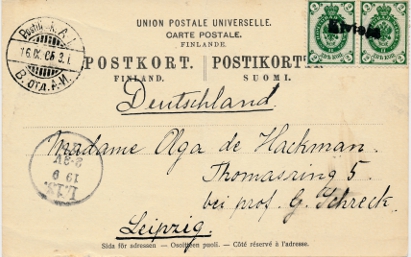 UNION POSTALE UNIVERSELLE.
CARTE POSTALE.
FINLANDE.
POSTKORT. POSTIKORTTI.
FINLAND. SUOMI.
Deutschland
Madame Olga de Hackman.
Thomasring 5.
bei prof. G. Schreck.
Leipzig.
Sida för adressen — Osoitteen puoli. — Côté réservé à l'adresse.